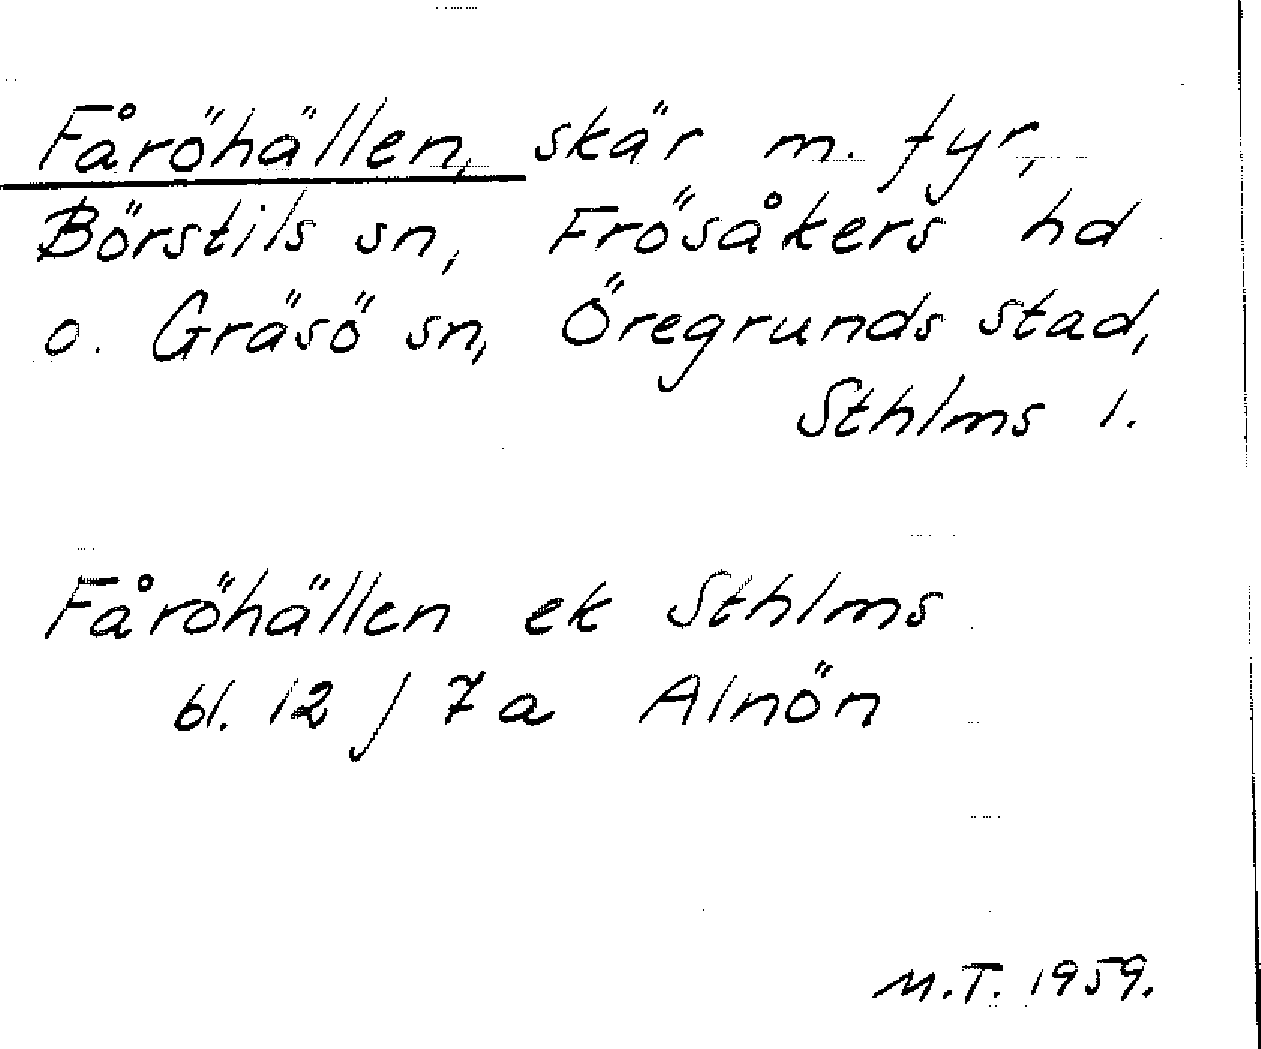 Fåröhällen, skär m. fyr,
Börstils sn, Frösåkers hd
o. Gräsö sn, Öregrunds stad,
Sthlms l.
Fåröhällen ek Sthlms
bl. 12 / 7a Alnön
M.T. 1959.